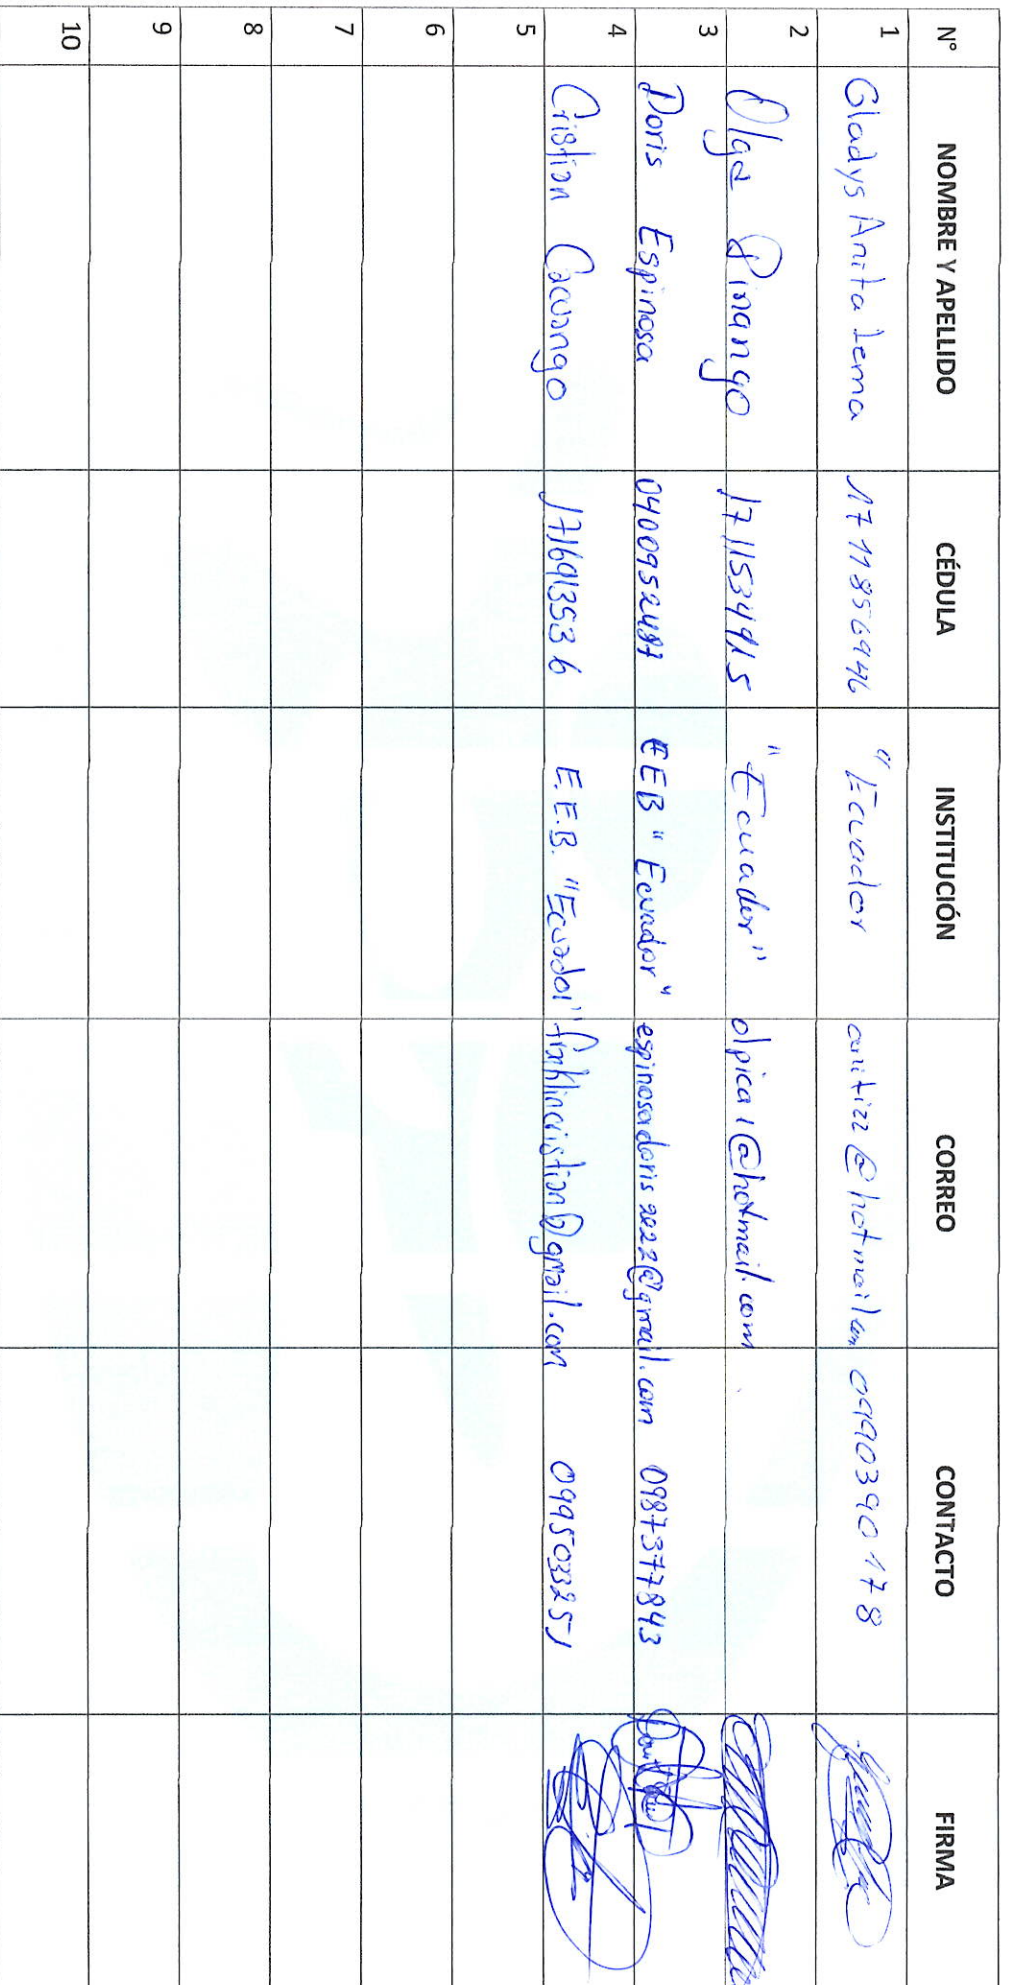 N° NOMBRE Y APELLIDO CÉDULA INSTITUCIÓN CORREO CONTACTO FIRMA
1 Gladys Anita Lema 1711856946 "Ecuador anitizz@hotmail.com 0990390178
2 Olga Pinango 1711534915 "Ecuador" olpica1@hotmail.com
3 Doris Espinosa 0400952487 EEB "Ecuador" espinosadoris2022@gmail.com 0987377843
4 Cristian Cacuango 1716913536 E.E.B. "Ecuador" franklincristian@gmail.com 0995033251
5
6
7
8
9
10